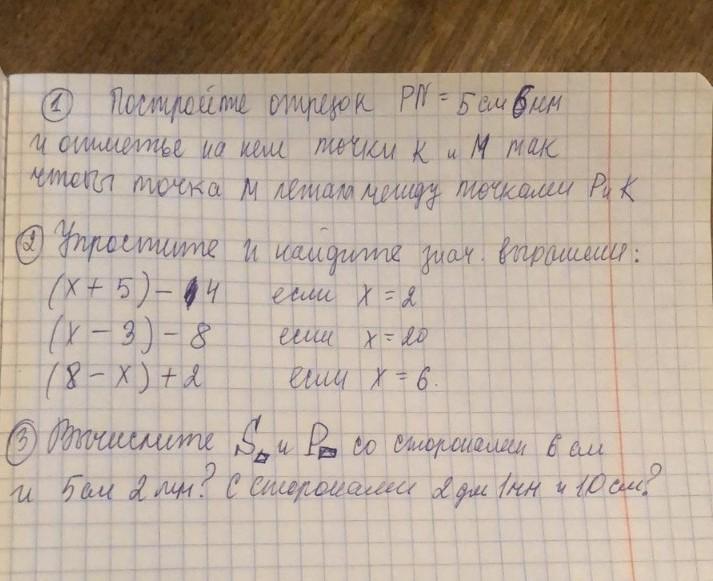 ① Постройте отрезок PN = 5 см 6 мм
и отметье на нем точки К и М так
чтобы точка М лежала между точками Р и К
② Упростите и найдите знач. выражени:
(x + 5) - 4 если x = 2
(x - 3) - 8 если x = 20
(8 - x) + 2 если x = 6.
③ Вычислите S▭ и P▭ со сторонами 6 см
и 5 см 2 мм? С сторонами 2 дм 1 мм и 10 см?